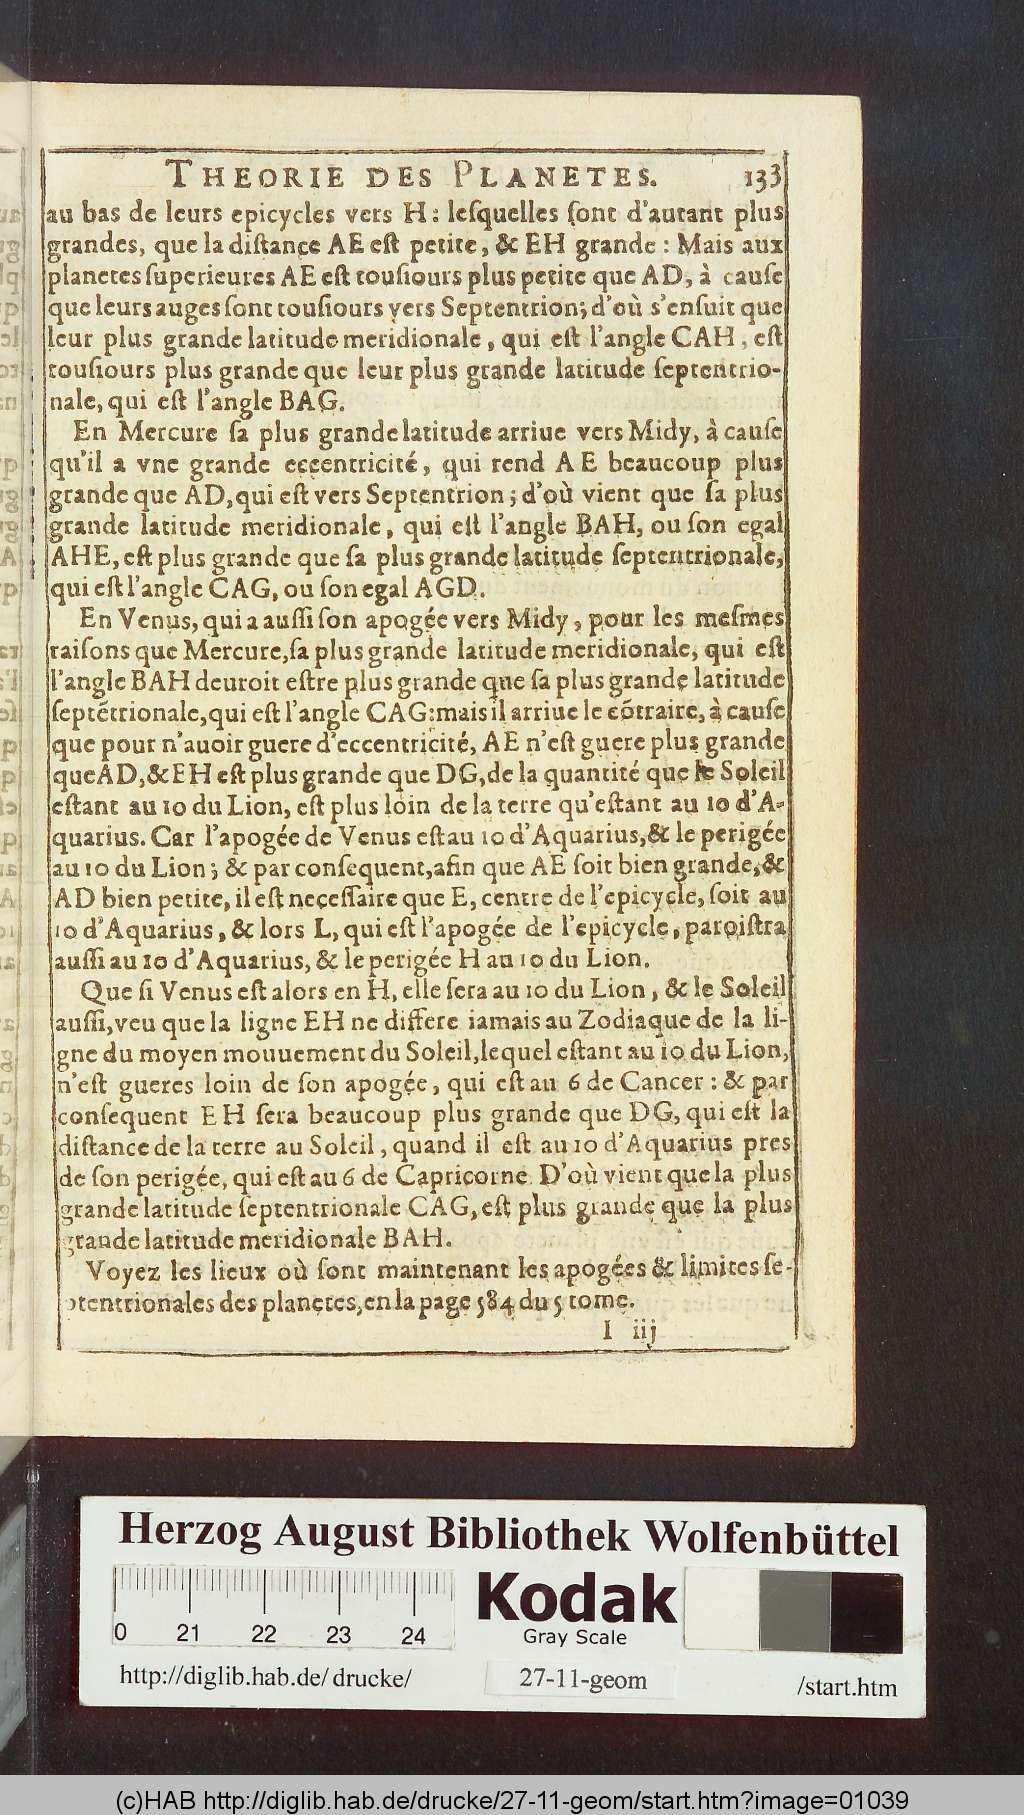 THEORIE DES PLANETES. 133
au bas de leurs epicycles vers H: leſquelles ſont d'autant plus
grandes, que la diſtance AE eſt petite, & EH grande: Mais aux
planetes ſuperieures AE eſt touſiours plus petite que AD, à cauſe
que leurs auges ſont touſiours vers Septentrion; d'où s'enſuit que
leur plus grande latitude meridionale, qui eſt l'angle CAH, eſt
touſiours plus grande que leur plus grande latitude ſeptentrio-
nale, qui eſt l'angle BAG.
En Mercure ſa plus grande latitude arriue vers Midy, à cauſe
qu'il a vne grande eccentricité, qui rend AE beaucoup plus
grande que AD, qui eſt vers Septentrion; d'où vient que ſa plus
grande latitude meridionale, qui eſt l'angle BAH, ou ſon egal
AHE, eſt plus grande que ſa plus grande latitude ſeptentrionale,
qui eſt l'angle CAG, ou ſon egal AGD.
En Venus, qui a auſſi ſon apogée vers Midy, pour les meſmes
raiſons que Mercure, ſa plus grande latitude meridionale, qui eſt
l'angle BAH deuroit eſtre plus grande que ſa plus grande latitude
ſeptẽtrionale, qui eſt l'angle CAG: mais il arriue le cõtraire, à cauſe
que pour n'auoir guere d'eccentricité, AE n'eſt guere plus grande
que AD, & EH eſt plus grande que DG, de la quantité que le Soleil
eſtant au 10 du Lion, eſt plus loin de la terre qu'eſtant au 10 d'A-
quarius. Car l'apogée de Venus eſt au 10 d'Aquarius, & le perigée
au 10 du Lion; & par conſequent, afin que AE ſoit bien grande, &
AD bien petite, il eſt neceſſaire que E, centre de l'epicycle, ſoit au
10 d'Aquarius, & lors L, qui eſt l'apogée de l'epicycle, paroiſtra
auſſi au 10 d'Aquarius, & le perigée H au 10 du Lion.
Que ſi Venus eſt alors en H, elle ſera au 10 du Lion, & le Soleil
auſſi, veu que la ligne EH ne differe iamais au Zodiaque de la li-
gne du moyen mouuement du Soleil, lequel eſtant au 10 du Lion,
n'eſt gueres loin de ſon apogée, qui eſt au 6 de Cancer: & par
conſequent EH ſera beaucoup plus grande que DG, qui eſt la
diſtance de la terre au Soleil, quand il eſt au 10 d'Aquarius pres
de ſon perigée, qui eſt au 6 de Capricorne. D'où vient que la plus
grande latitude ſeptentrionale CAG, eſt plus grande que la plus
grande latitude meridionale BAH.
Voyez les lieux où ſont maintenant les apogées & limites ſe-
ptentrionales des planetes, en la page 584 du 5 tome.
I iij
Herzog August Bibliothek Wolfenbüttel
0 21 22 23 24
Kodak
Gray Scale
http://diglib.hab.de/ drucke/ 27-11-geom /start.htm
(c)HAB http://diglib.hab.de/drucke/27-11-geom/start.htm?image=01039